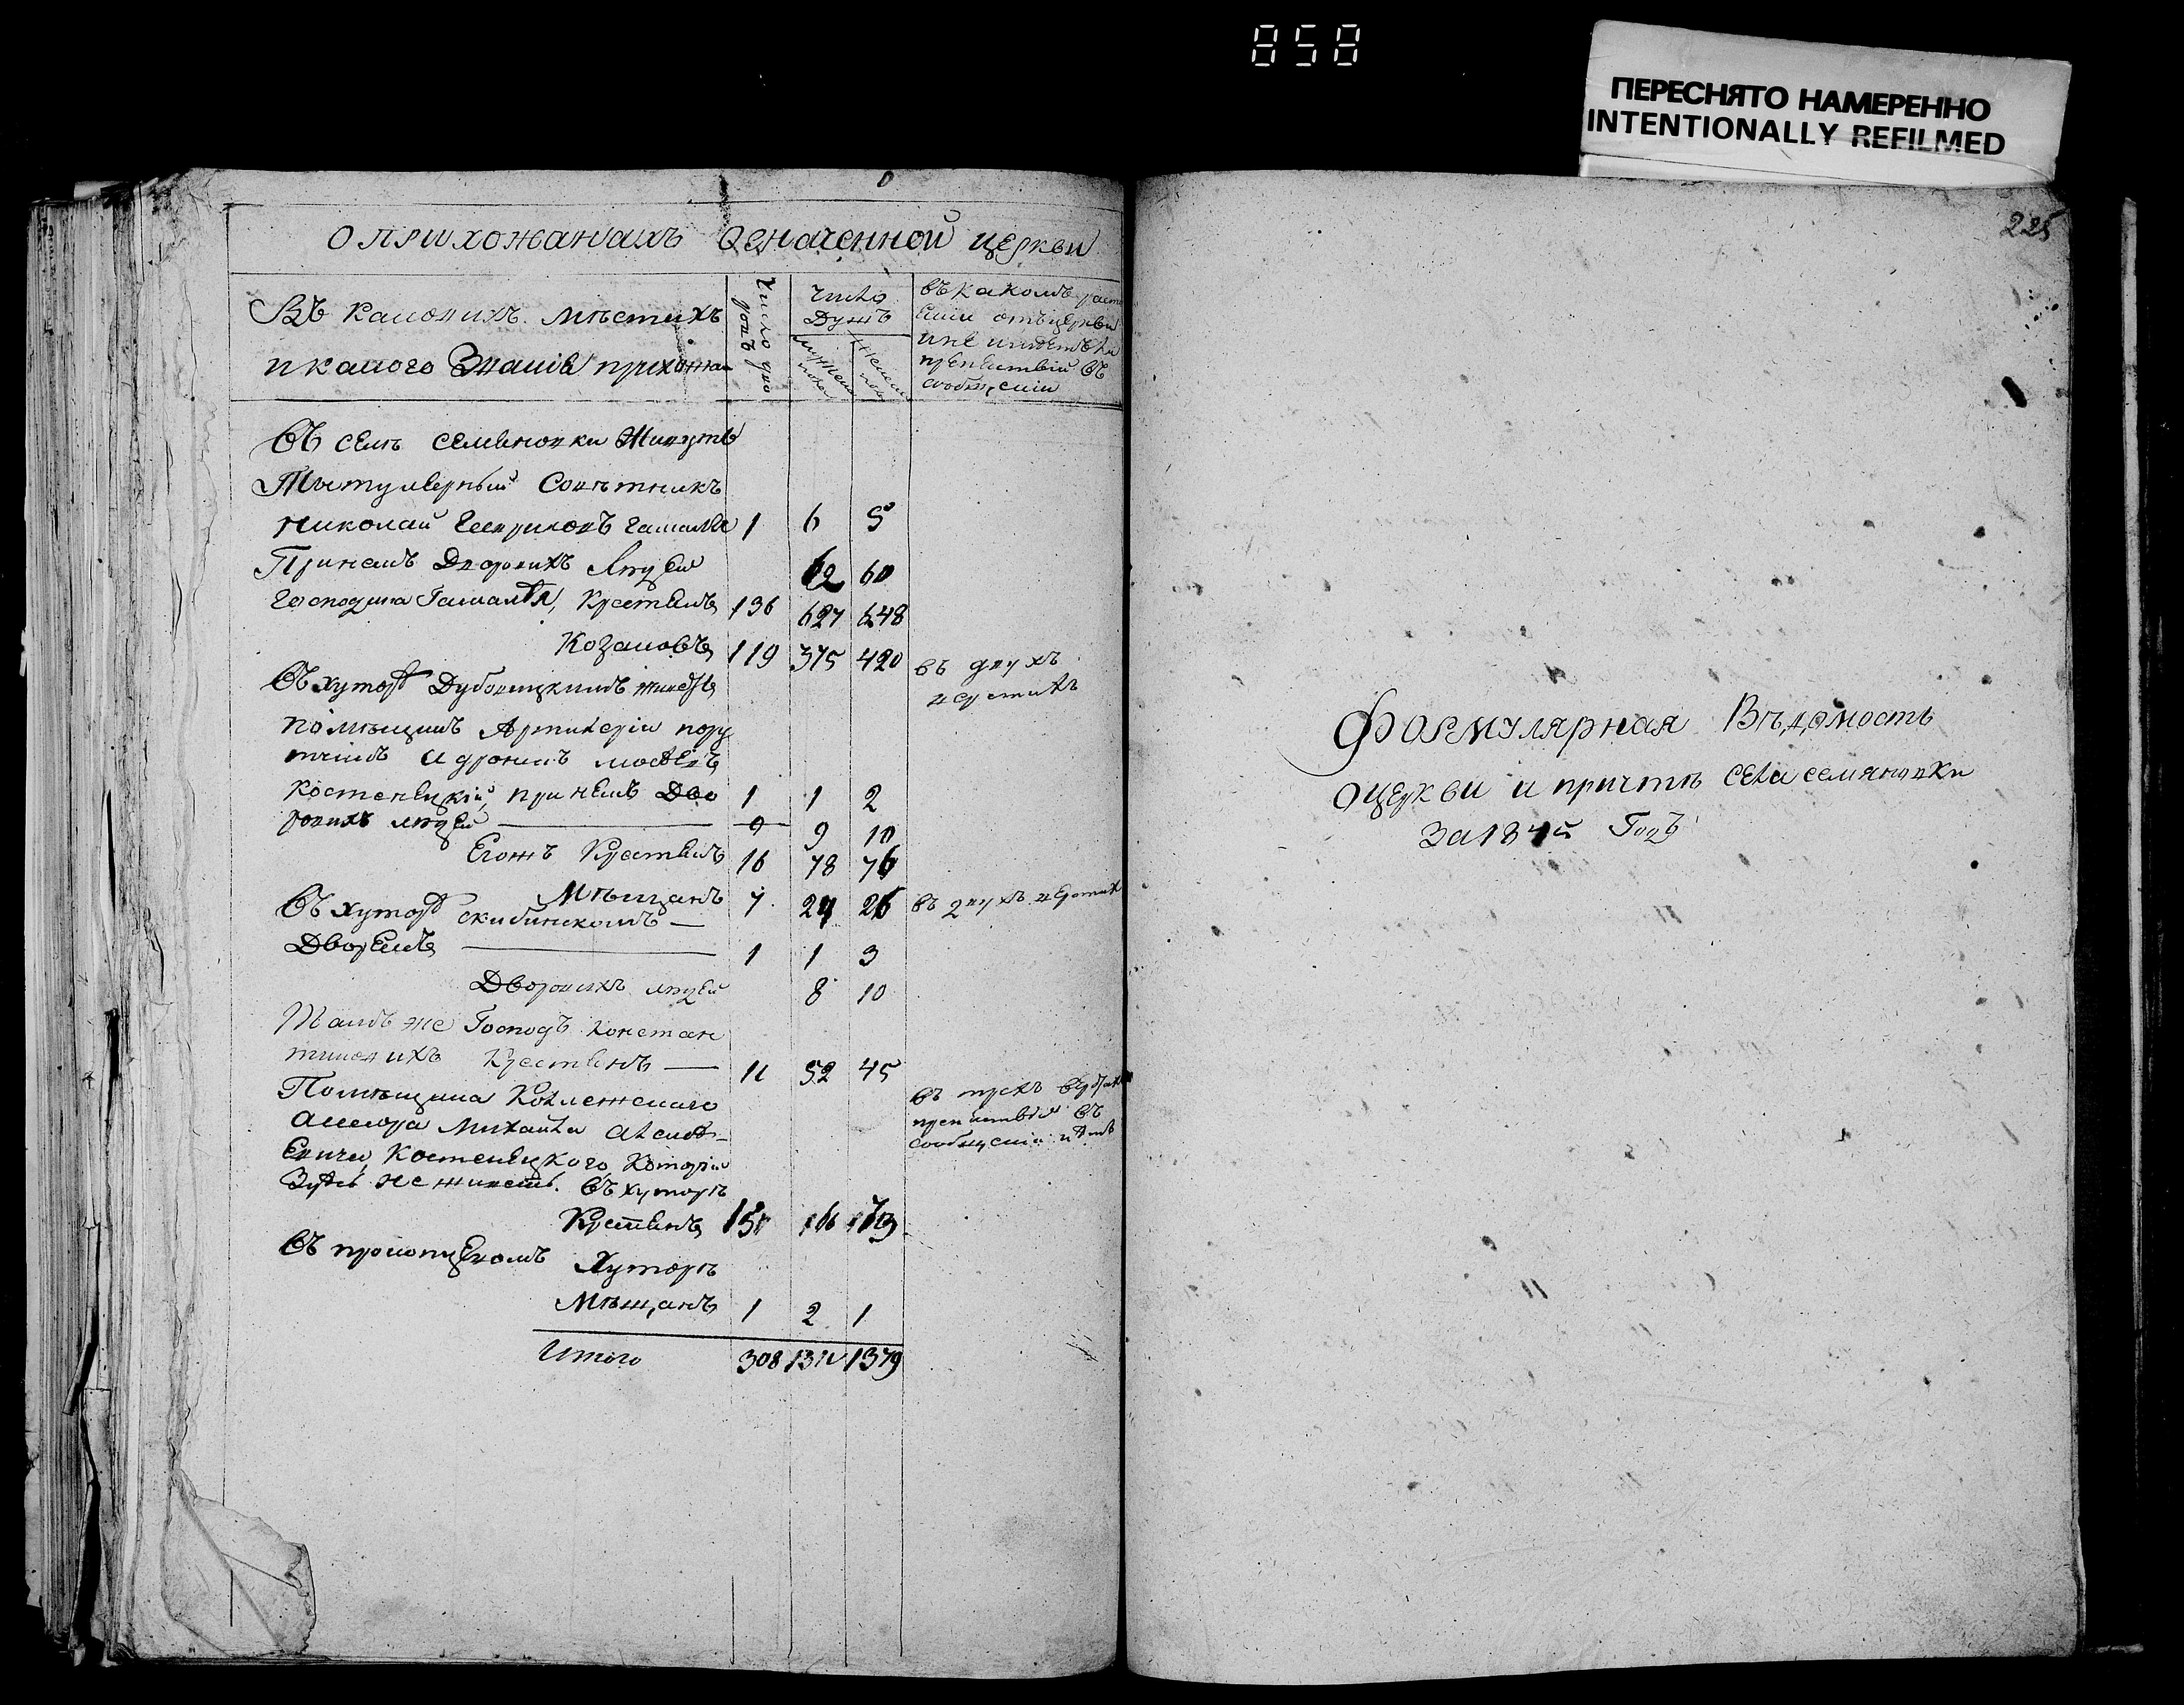 858
ПЕРЕСНЯТО НАМЕРЕННО
INTENTIONALLY REFILMED
225
О прихожанахъ означенной церкви
Въ каковихъ мѣстахъ
и какого званія прихожан
Число дво
ровъ
Число
Душъ
мужеска
пола
женска
пола
въ какомъ разст
яніи отъ церкви
и не имѣетъ ли
препятствій въ
сообщеніи
Въ селѣ Семяновки Живутъ
Тытулярный Совѣтникъ
Николай 1 6 5
При немъ Дворовихъ людей 62 60
Господина Крестьянъ 136 627 648
Козаковъ 119 375 420
въ двухъ
верстахъ
Въ хуторѣ Дубовицкимъ живетъ
помѣщикъ Артилеріи пору
чикъ
Костенецкій, при немъ Дво 1 1 2
ровихъ людей 9 9 10
Егожъ Крестьянъ 16 78 76
Мѣщанъ 7 24 26 въ двухъ верстах
Въ хуторѣ Скибинскомъ
Дворянъ 1 1 3
Дворовихъ людей 8 10
Тамъ же Господъ Констан
тиновихъ Крестьянъ 11 52 45
Помѣщика Колежскаго
Асесора Михайла Алексѣ-
евича Костенецкого, Который
Здѣсь не живетъ. Въ хуторѣ
въ трехъ верстах
препятствій въ
сообщеніи нѣтъ
Крестьянъ
Въ Хуторѣ
Мѣщанъ 1 2 1
Итого 308 1379
Формулярная Вѣдомость
О церкви и причтѣ села семяновки
За Годъ